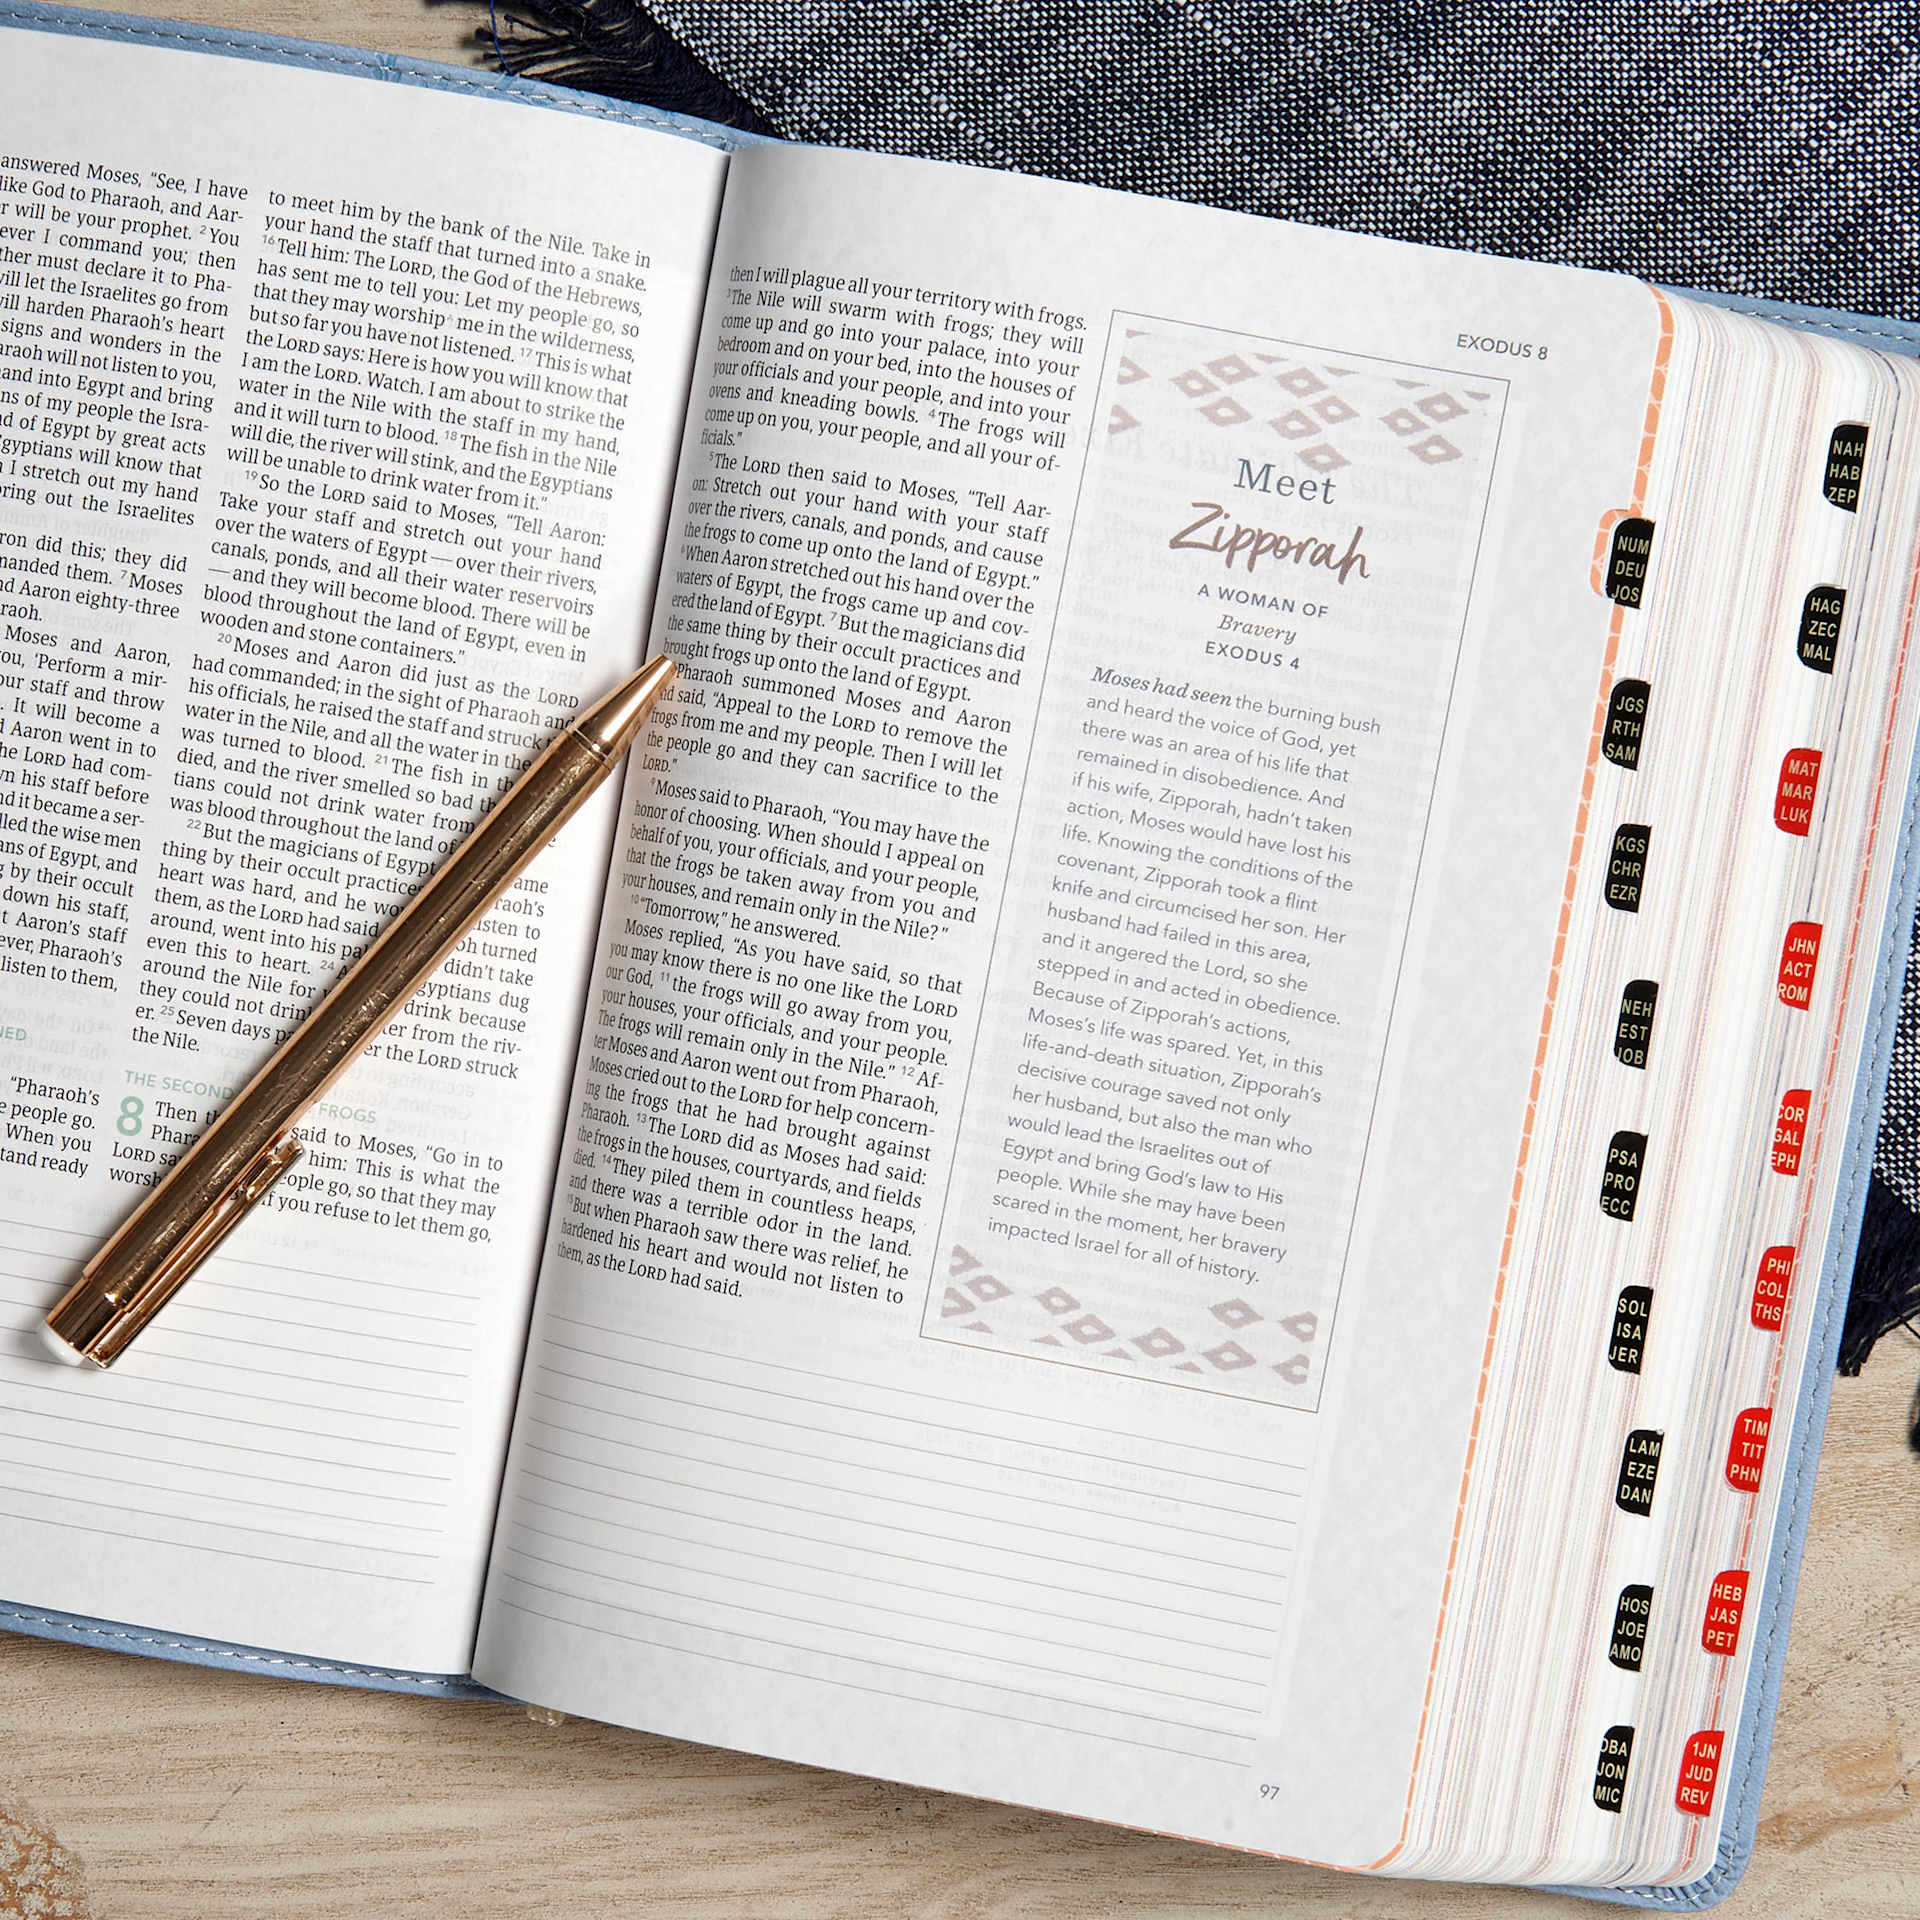 answered Moses, “See, I have
like God to Pharaoh, and Aar-
will be your prophet. 2 You
ever I command you; then
must declare it to Pha-
will let the Israelites go from
will harden Pharaoh’s heart
signs and wonders in the
will not listen to you,
hand into Egypt and bring
of my people the Isra-
of Egypt by great acts
Egyptians will know that
I stretch out my hand
bring out the Israelites
did this; they did
7 Moses
nd Aaron eighty-three
Moses and Aaron,
you, ‘Perform a mir-
your staff and throw
. It will become a
Aaron went in to
the LORD had com-
his staff before
nd it became a ser-
the wise men
of Egypt, and
by their occult
down his staff,
Aaron’s staff
Pharaoh’s
listen to them,
“Pharaoh’s
people go.
When you
stand ready
to meet him by the bank of the Nile. Take in
your hand the staff that turned into a snake.
16 Tell him: The LORD, the God of the Hebrews,
has sent me to tell you: Let my people go, so
that they may worship me in the wilderness,
but so far you have not listened. 17 This is what
the LORD says: Here is how you will know that
I am the LORD. Watch. I am about to strike the
water in the Nile with the staff in my hand,
and it will turn to blood. 18 The fish in the Nile
will die, the river will stink, and the Egyptians
will be unable to drink water from it.”
19 So the LORD said to Moses, “Tell Aaron:
Take your staff and stretch out your hand
over the waters of Egypt — over their rivers,
canals, ponds, and all their water reservoirs
— and they will become blood. There will be
blood throughout the land of Egypt, even in
wooden and stone containers.”
20 Moses and Aaron did just as the LORD
had commanded; in the sight of Pharaoh and
his officials, he raised the staff and struck
water in the Nile, and all the water in the
was turned to blood. 21 The fish in th
died, and the river smelled so bad th
tians could not drink water from
was blood throughout the land of
22 But the magicians of Egypt ame
thing by their occult practices raoh’s
heart was hard, and he wo listen to
them, as the LORD had said. oh turned
around, went into his pal didn’t take
even this to heart. 24 A gyptians dug
around the Nile for drink because
they could not drin ter from the riv-
er. 25 Seven days pa er the LORD struck
the Nile.
THE SECOND FROGS
8 Then th said to Moses, “Go in to
Phara him: This is what the
LORD sa eople go, so that they may
worsh if you refuse to let them go,
EXODUS 8
then I will plague all your territory with frogs.
3 The Nile will swarm with frogs; they will
come up and go into your palace, into your
bedroom and on your bed, into the houses of
your officials and your people, and into your
ovens and kneading bowls. 4 The frogs will
come up on you, your people, and all your of-
ficials.”
5 The LORD then said to Moses, “Tell Aar-
on: Stretch out your hand with your staff
over the rivers, canals, and ponds, and cause
the frogs to come up onto the land of Egypt.”
6 When Aaron stretched out his hand over the
waters of Egypt, the frogs came up and cov-
ered the land of Egypt. 7 But the magicians did
the same thing by their occult practices and
brought frogs up onto the land of Egypt.
Pharaoh summoned Moses and Aaron
and said, “Appeal to the LORD to remove the
frogs from me and my people. Then I will let
the people go and they can sacrifice to the
LORD.”
9 Moses said to Pharaoh, “You may have the
honor of choosing. When should I appeal on
behalf of you, your officials, and your people,
that the frogs be taken away from you and
your houses, and remain only in the Nile?”
10 “Tomorrow,” he answered.
Moses replied, “As you have said, so that
you may know there is no one like the LORD
our God, 11 the frogs will go away from you,
your houses, your officials, and your people.
The frogs will remain only in the Nile.” 12 Af-
ter Moses and Aaron went out from Pharaoh,
Moses cried out to the LORD for help concern-
ing the frogs that he had brought against
Pharaoh. 13 The LORD did as Moses had said:
the frogs in the houses, courtyards, and fields
died. 14 They piled them in countless heaps,
and there was a terrible odor in the land.
15 But when Pharaoh saw there was relief, he
hardened his heart and would not listen to
them, as the LORD had said.
Meet
Zipporah
A WOMAN OF
Bravery
EXODUS 4
Moses had seen the burning bush
and heard the voice of God, yet
there was an area of his life that
remained in disobedience. And
if his wife, Zipporah, hadn’t taken
action, Moses would have lost his
life. Knowing the conditions of the
covenant, Zipporah took a flint
knife and circumcised her son. Her
husband had failed in this area,
and it angered the Lord, so she
stepped in and acted in obedience.
Because of Zipporah’s actions,
Moses’s life was spared. Yet, in this
life-and-death situation, Zipporah’s
decisive courage saved not only
her husband, but also the man who
would lead the Israelites out of
Egypt and bring God’s law to His
people. While she may have been
scared in the moment, her bravery
impacted Israel for all of history.
97
NUM
DEU
JOS
JGS
RTH
SAM
KGS
CHR
EZR
NEH
EST
JOB
PSA
PRO
ECC
SOL
ISA
JER
LAM
EZE
DAN
HOS
JOE
AMO
OBA
JON
MIC
NAH
HAB
ZEP
HAG
ZEC
MAL
MAT
MAR
LUK
JHN
ACT
ROM
COR
GAL
EPH
PHI
COL
THS
TIM
TIT
PHN
HEB
JAS
PET
1JN
JUD
REV